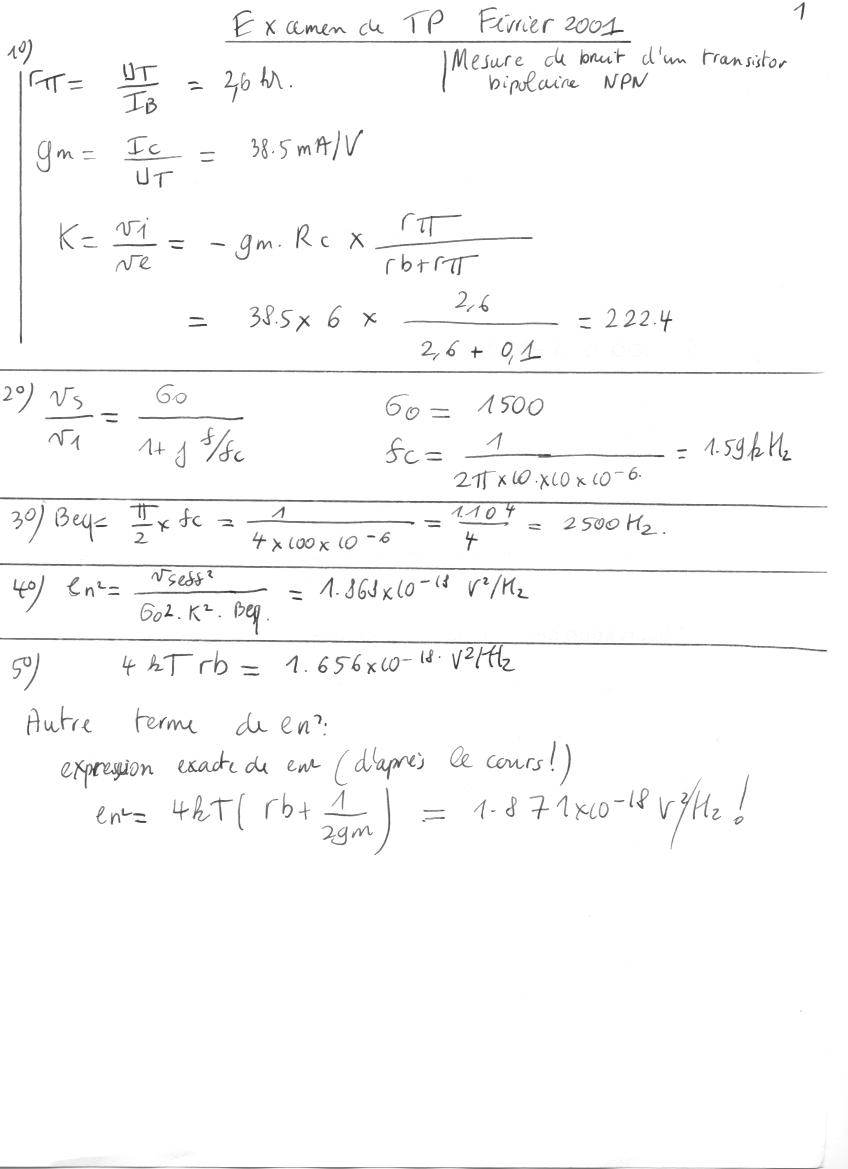 1
Examen de TP Février 2001
Mesure de bruit d'un transistor
bipolaire NPN
1°)
rπ = UT/IB = 2,6 kΩ.
gm = Ic/UT = 38.5 mA/V
K = vi/ve = - gm. Rc x rπ/(rb+rπ)
= 38.5 x 6 x 2,6/(2,6 + 0,1) = 222.4
2°) vs/v1 = G0/(1+ j f/fc) G0 = 1500
fc = 1/(2π x 10 x 10 x 10-6.) = 1.59 kHz
3°) Beq = π/2 x fc = 1/(4 x 100 x 10-6) = 1 10^4/4 = 2500 Hz.
4°) en² = vseff²/(G0². K². Beq.) = 1.868 x 10-18 V²/Hz
5°) 4 kT rb = 1.656 x 10-18. V²/Hz
Autre terme de en²:
expression exacte de en² (d'après le cours!)
en² = 4kT( rb + 1/2gm ) = 1.871 x 10-18 V²/Hz !